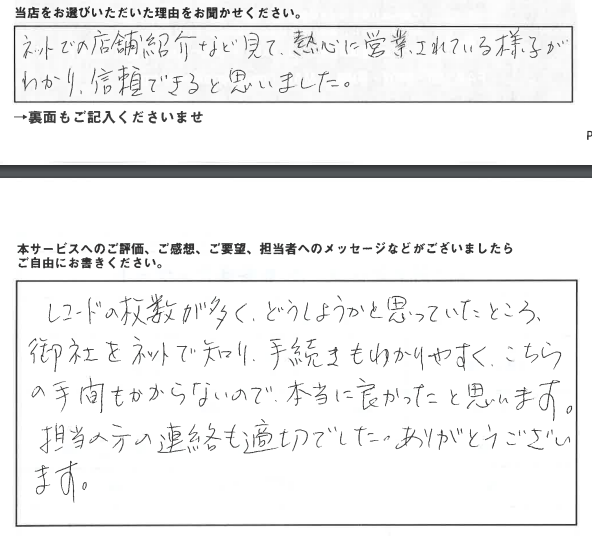 当店をお選びいただいた理由をお聞かせください。
ネットでの店舗紹介など見て、熱心に営業されている様子が
わかり、信頼できると思いました。
→裏面もご記入くださいませ
P
本サービスへのご評価、ご感想、ご要望、担当者へのメッセージなどがございましたら
ご自由にお書きください。
レコードの枚数が多く、どうしようかと思っていたところ、
御社をネットで知り、手続きもわかりやすく、こちら
の手間もかからないので、本当に良かったと思います。
担当の方の連絡も適切でした。ありがとうござい
ます。